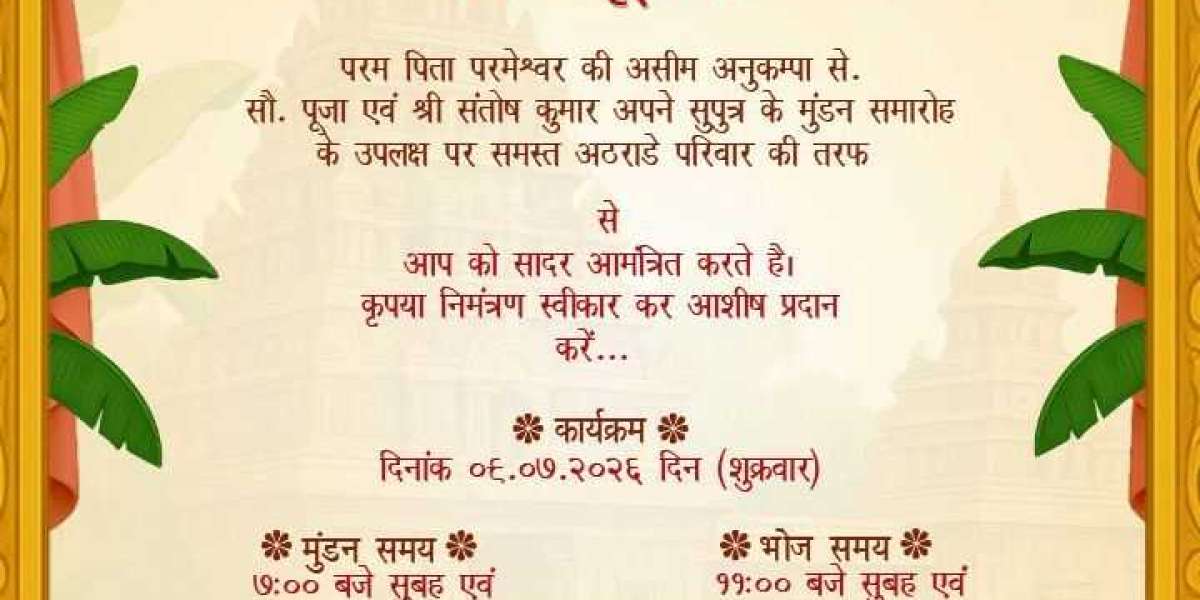 परम पिता परमेश्वर की असीम अनुकम्पा से.
सौ. पूजा एवं श्री संतोष कुमार अपने सुपुत्र के मुंडन समारोह
के उपलक्ष पर समस्त अठराडे परिवार की तरफ
से
आप को सादर आमंत्रित करते है।
कृपया निमंत्रण स्वीकार कर आशीष प्रदान
करें...
कार्यक्रम
दिनांक ०९.०७.२०२६ दिन (शुक्रवार)
मुंडन समय
७:०० बजे सुबह एवं
भोज समय
११:०० बजे सुबह एवं